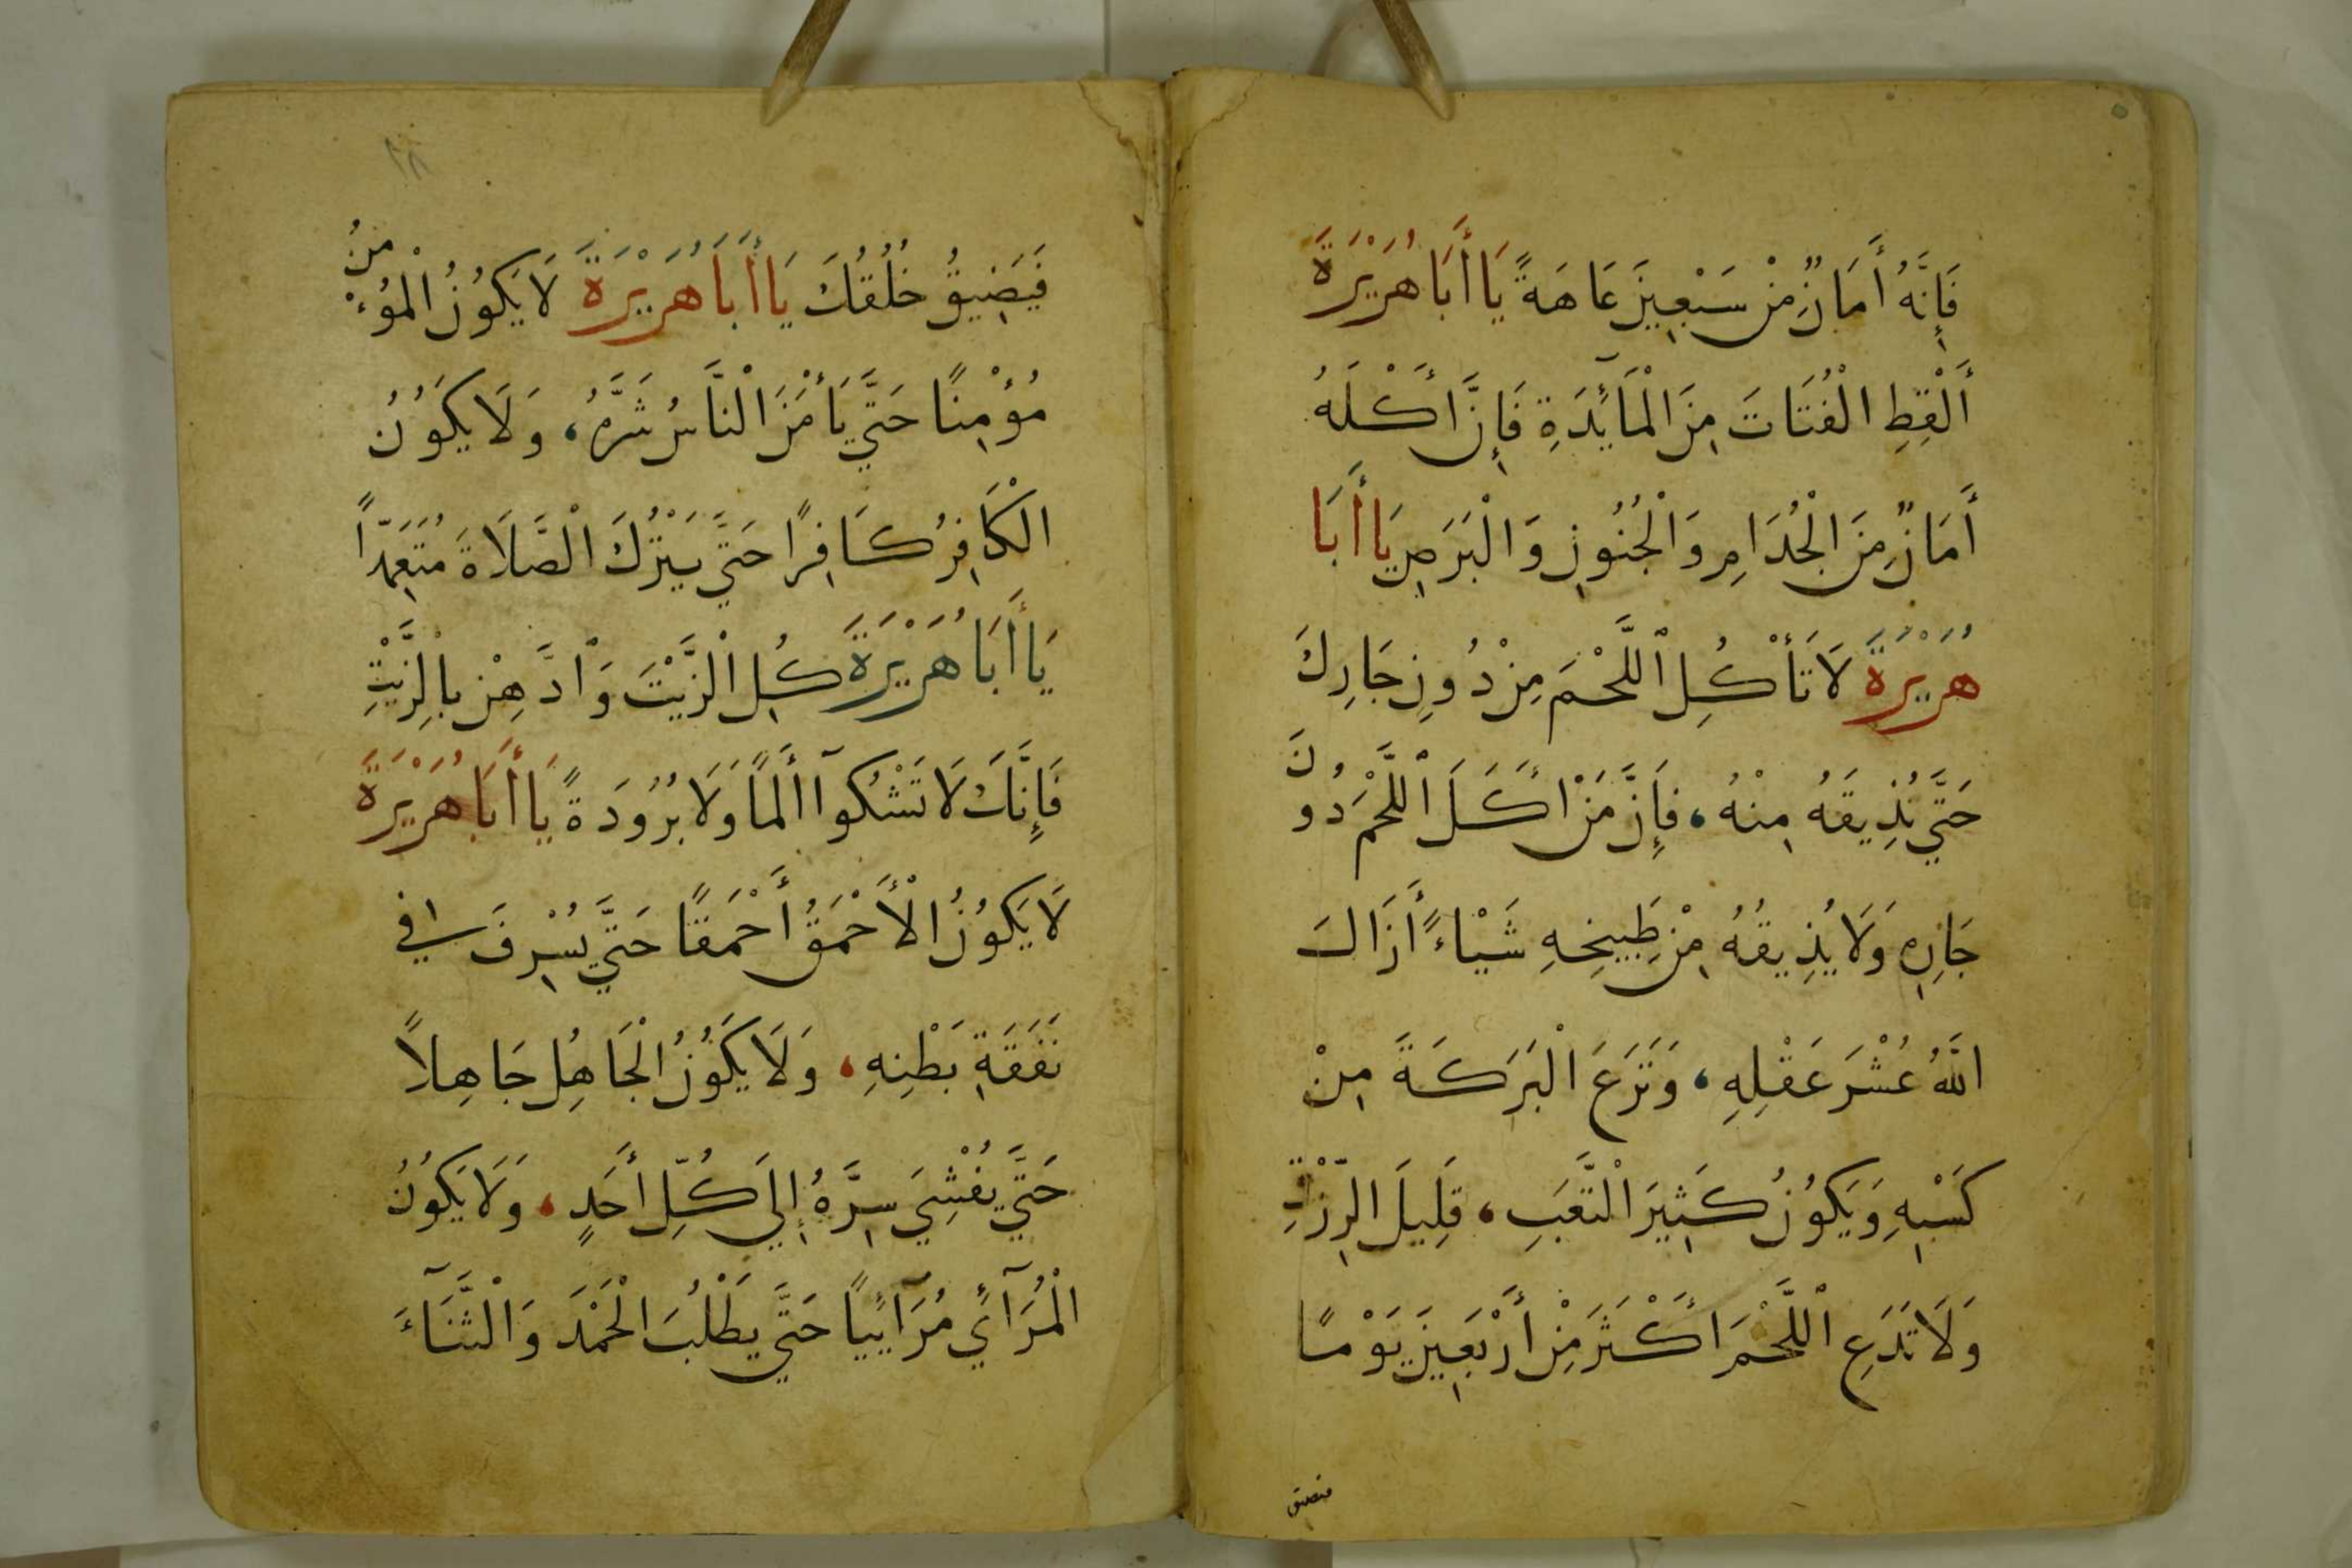 فَإِنَّهُ أَمَانٌ مِنْ سَبْعِينَ عَاهَةً يَا أَبَا هُرَيْرَةَ
أَلْقِطِ الْفُتَاتَ مِنَ الْمَآئِدَةِ فَإِنَّ أَكْلَهُ
أَمَانٌ مِنَ الْجُذَامِ وَالْجُنُونِ وَالْبَرَصِ يَا أَبَا
هُرَيْرَةَ لَا تَأْكُلِ اللَّحْمَ مِنْ دُونِ جَارِكَ
حَتَّي تُذِيقَهُ مِنْهُ، فَإِنَّ مَنْ أَكَلَ اللَّحْمَ دُونَ
جَارِهِ وَلَا يُذِيقُهُ مِنْ طَبِيخِهِ شَيْاءً أَزَالَ
اللَّهُ عُشْرَ عَقْلِهِ، وَنَزَعَ الْبَرَكَةَ مِنْ
كَسْبِهِ وَيَكُونُ كَثِيرَ التَّعَبِ، قَلِيلَ الرِّزْقِ
وَلَا تَدَعِ اللَّحْمَ أَكْثَرَ مِنْ أَرْبَعِينَ يَوْمًا
فيضيق
٢٨
فَيَضِيقُ خُلُقُكَ يَا أَبَا هُرَيْرَةَ لَا يَكُونُ الْمُؤْمِنُ
مُؤْمِنًا حَتَّي يَأْمَنَ النَّاسُ شَرَّهُ، وَلَا يَكُونُ
الْكَافِرُ كَافِرًا حَتَّي يَتْرُكَ الصَّلَاةَ مُتَعَمِّدًا
يَا أَبَا هُرَيْرَةَ كُلِ الزَّيْتَ وَادَّهِنْ بِالزَّيْتِ
فَإِنَّكَ لَا تَشْكُوآ أَلَمًا وَلَا بُرُودَةً يَا أَبَا هُرَيْرَةَ
لَا يَكُونُ الْأَحْمَقُ أَحْمَقًا حَتَّي يُسْرِفَ في
نَفَقَةِ بَطْنِهِ، وَلَا يَكُونُ الْجَاهِلُ جَاهِلًا
حَتَّي يُفْشِيَ سِرَّهُ إِلَي كُلِّ أَحَدٍ، وَلَا يَكُونُ
الْمُرَآئي مُرَآئِيًا حَتَّي يَطْلُبَ الْحَمْدَ وَالثَّنَآءَ